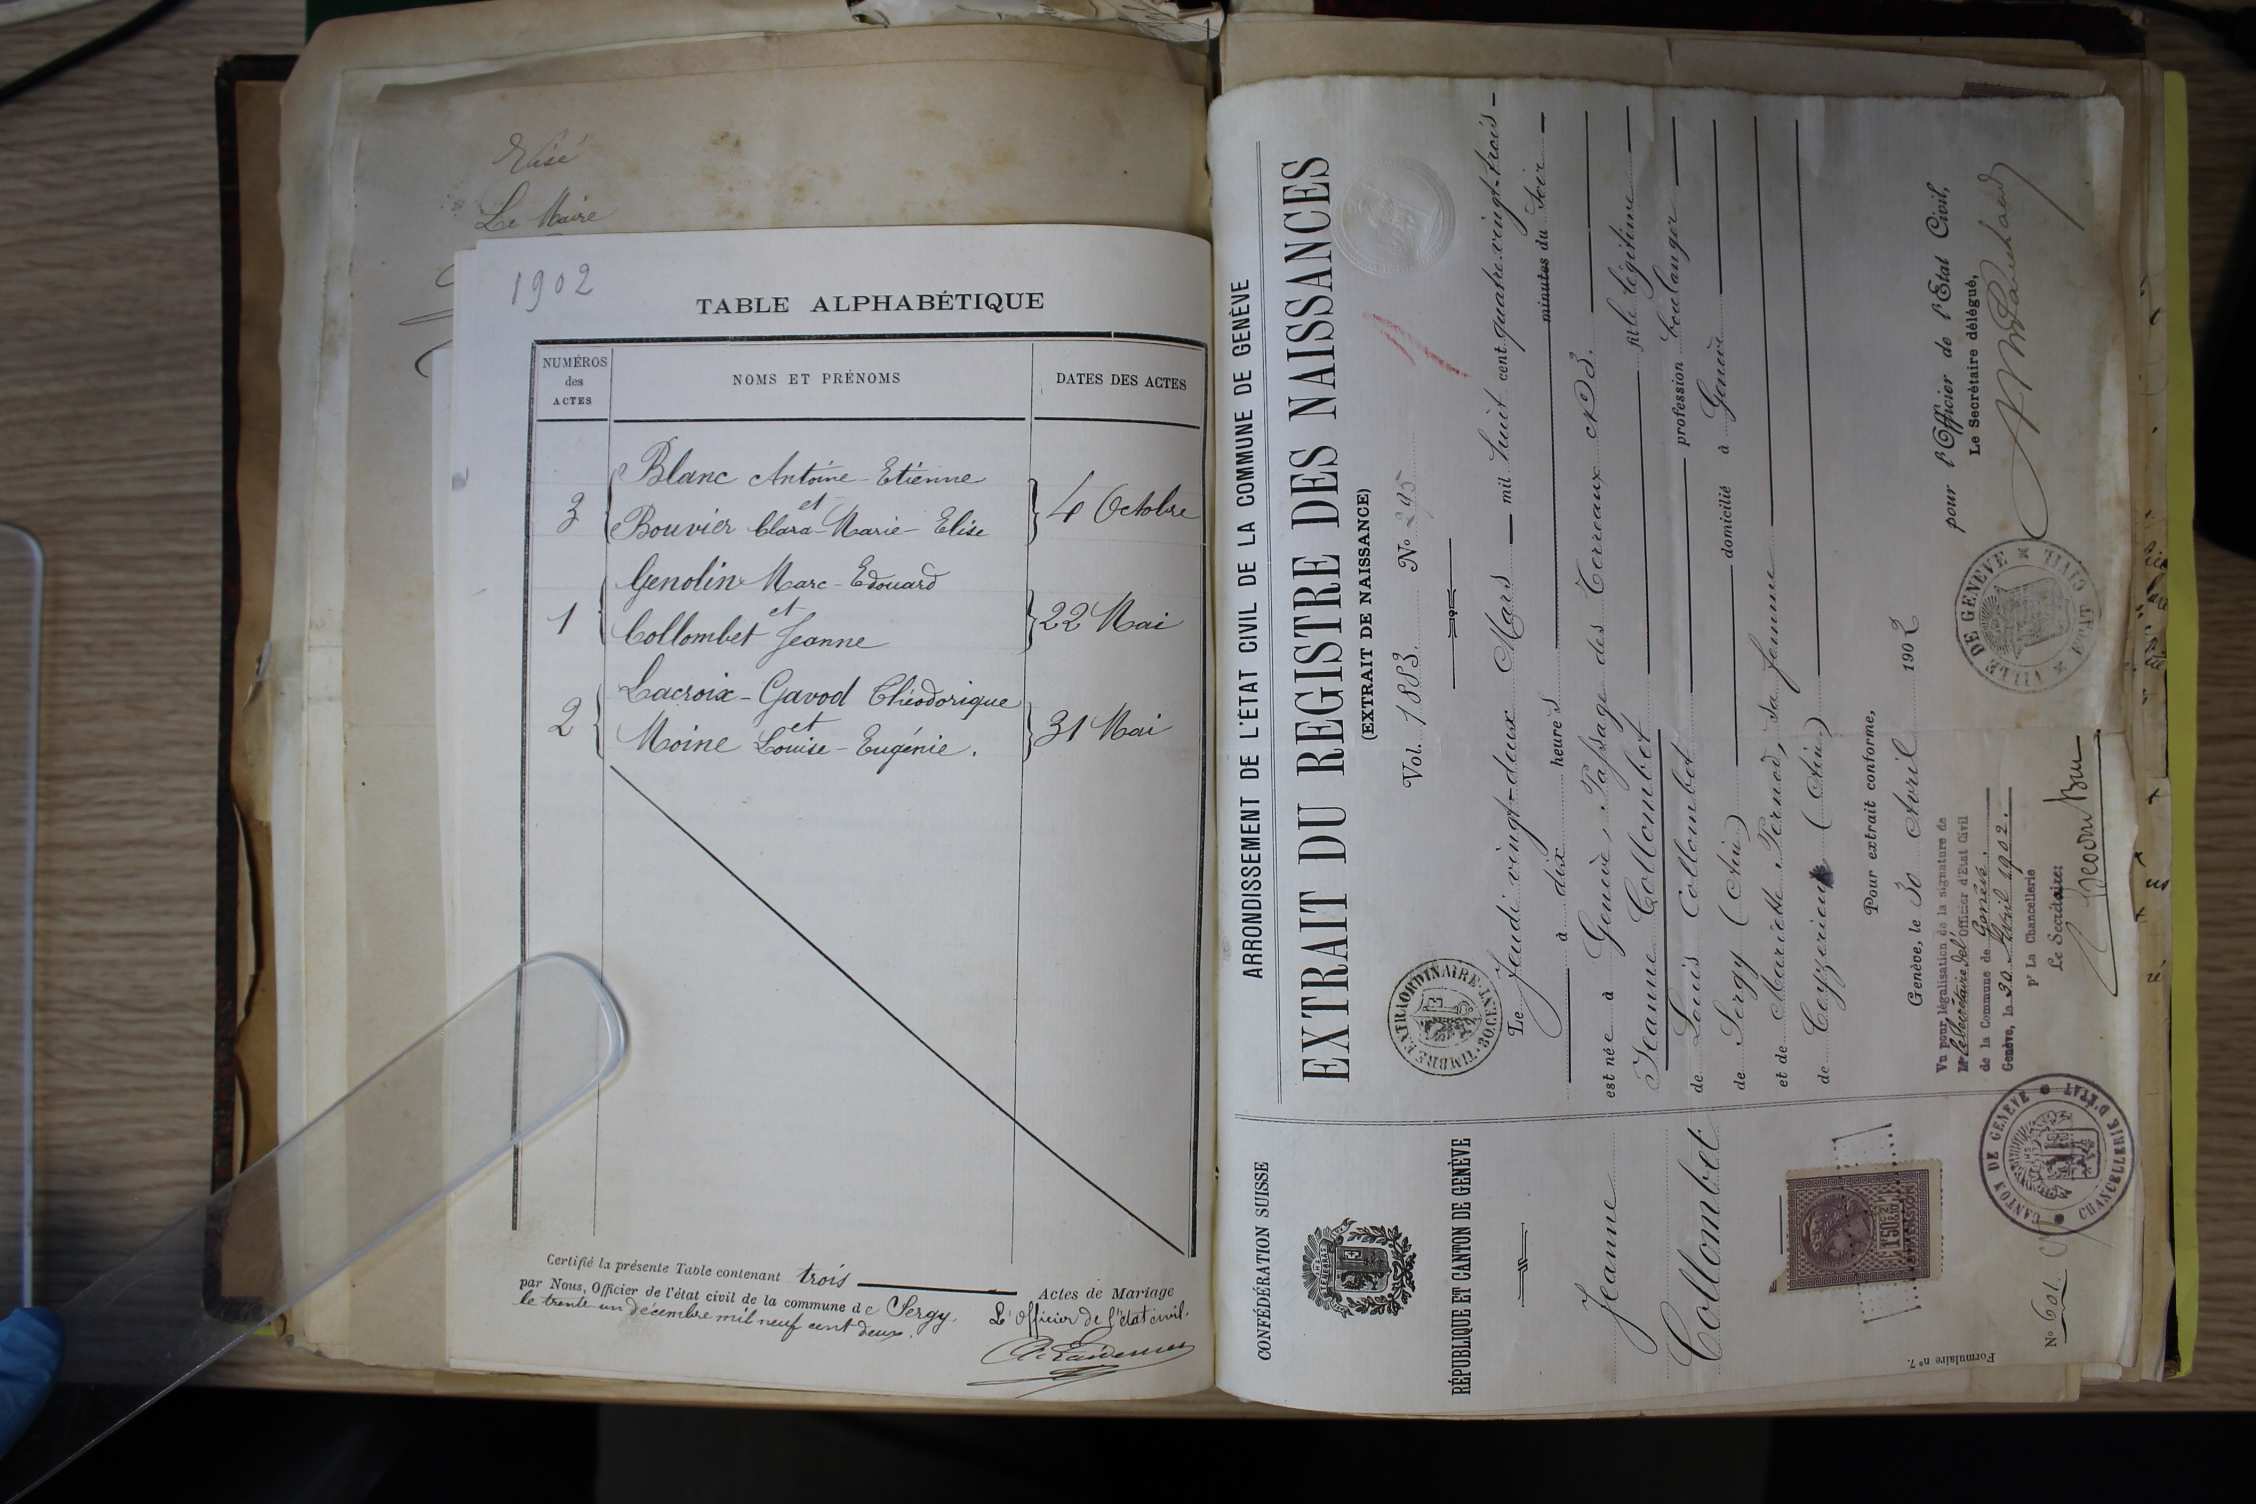 Visé
Le Maire
1902
TABLE ALPHABÉTIQUE
NUMÉROS
des
ACTES
NOMS ET PRÉNOMS
DATES DES ACTES
Blanc Antoine-Etienne
et
3 Bouvier Clara-Marie-Elise 4 Octobre
Genolin Marc-Edouard
et
1 Collombet Jeanne 22 Mai
Lacroix-Gavod Théodorique
et
2 Moine Louise-Eugénie. 31 Mai
Certifié la présente Table contenant trois Actes de Mariage
par Nous, Officier de l'état civil de la commune de Sergy.
le trente-un décembre mil neuf cent deux.
L'officier de l'état civil.
CONFÉDÉRATION SUISSE
RÉPUBLIQUE ET CANTON DE GENÈVE
Jeanne
Collombet
Formulaire nº 7.
Nº 601.
ARRONDISSEMENT DE L'ÉTAT CIVIL DE LA COMMUNE DE GENÈVE
EXTRAIT DU REGISTRE DES NAISSANCES
(EXTRAIT DE NAISSANCE)
Vol. 1883. Nº 295
TIMBRE EXTRAORDINAIRE
30 CENT
Le Jeudi vingt-deux Mars mil huit cent quatre-vingt-trois
à dix heures minutes du soir
est née à Genève, Passage des Terreaux Nº 3.
Jeanne Collombet fille légitime
de Louis Collombet profession boulanger
de Sergy (Ain) domicilié à Genève
et de Mariette Pernod, sa femme
de Ceyzerieu (Ain)
Pour extrait conforme,
Genève, le 30 Avril 1902
pour l'Officier de l'Etat Civil,
Le Secrétaire délégué,
VILLE DE GENÈVE
ETAT CIVIL
Vu pour légalisation de la signature de
Mr le Secrétaire dél. Officier d'Etat Civil
de la Commune de Genève.
Genève, le 30 Avril 1902.
pr La Chancellerie
Le Secrétaire:
CANTON DE GENEVE
CHANCELLERIE D'ETAT